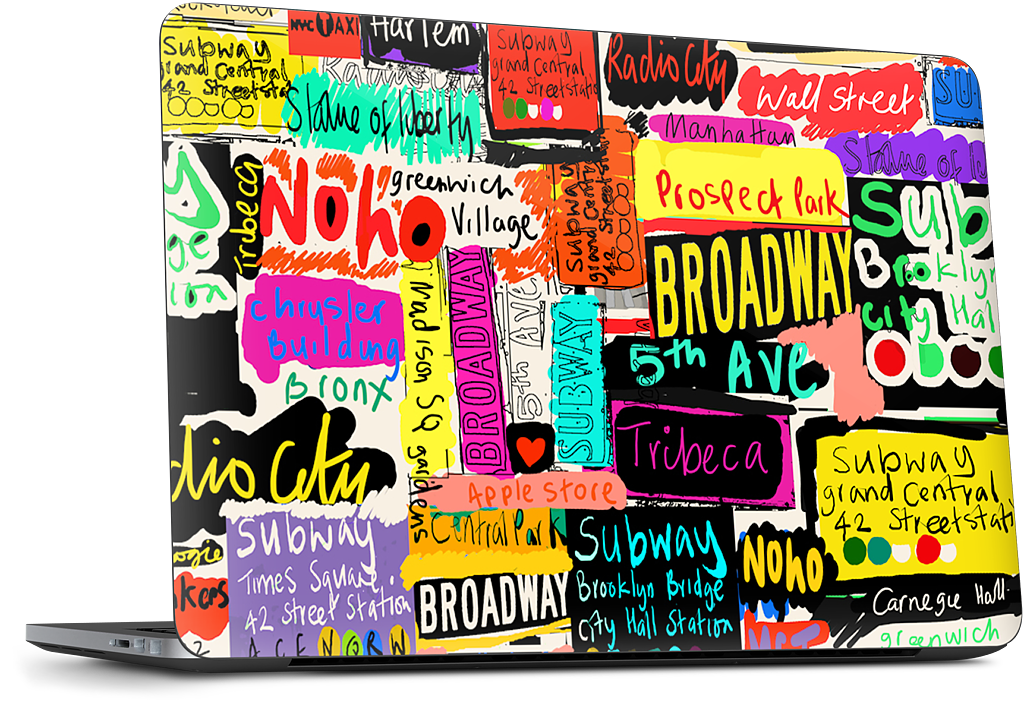 NYC TAXI
Harlem
Subway
grand Central
42 Streetstati
Subway
grand Central
42 Streetstatio
Radio City
Wall Street
SU
Statue of liberty
Manhattan
Statue of li
Tribeca
NoHo
greenwich
Village
Subway
grand Central
42 Streetstation
Prospect Park
Sub
Brooklyn
City Hal
ge
ion
BROADWAY
chrysler
Building
Bronx
Madison SQ gardens
BROADWAY
5th AVE
SUBWAY
5th AVe
Tribeca
dio City
Apple store
Subway
grand Central
42 Streetstati
Subway
Times Square.
42 street Station
A C E N Q R W
Central Park
BROADWAY
Subway
Brooklyn Bridge
City Hall Station
NoHo
oogie
kers
2
Carnegie Hall.
greenwich